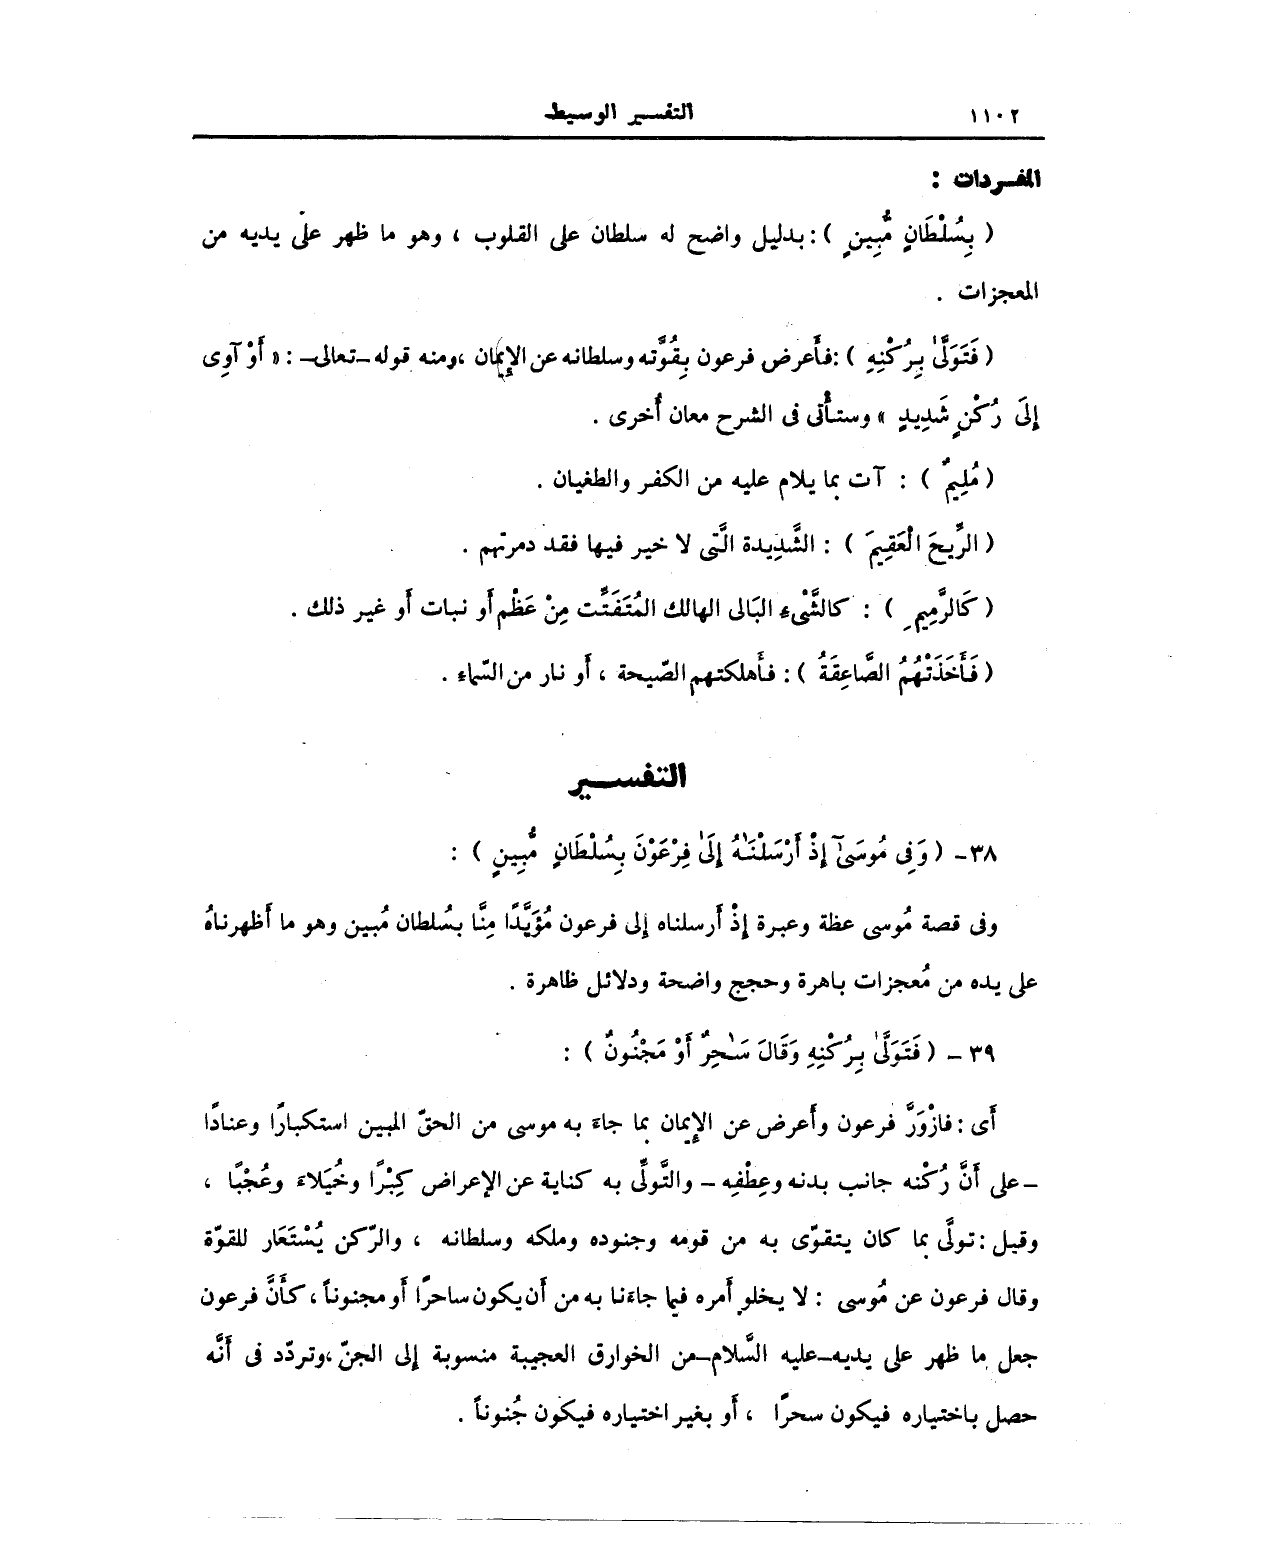 ١١٠٢ التفسير الوسيط
المفردات :
( بِسُلْطَانٍ مُّبِينٍ ) : بدليل واضح له سلطان على القلوب ، وهو ما ظهر على يديه من
المعجزات .
( فَتَوَلَّىٰ بِرُكْنِهِ ) : فأَعرض فرعون بِقُوَّته وسلطانه عن الإِيمان ،ومنه قوله_تعالى_ : « أَوْ آوِى
إِلَى رُكْنٍ شَدِيدٍ » وستأْتى فى الشرح معان أُخرى .
( مُلِيمٌ ) : آت بما يلام عليه من الكفر والطغيان .
( الرِّيحَ الْعَقِيمَ ) : الشَّدِيدة الَّتى لا خير فيها فقد دمرتهم .
( كَالرَّمِيمِ ) : كالشَّىْءِ البَالى الهالك المُتَفَتِّت مِنْ عَظْم أَو نبات أَو غير ذلك .
( فَأَخَذَتْهُمُ الصَّاعِقَةُ ) : فأَهلكتهم الصّيحة ، أَو نار من السّماء .
التفســير
٣٨- ( وَفِى مُوسَىٰٓ إِذْ أَرْسَلْنَـٰهُ إِلَىٰ فِرْعَوْنَ بِسُلْطَانٍ مُّبِينٍ ) :
وفى قصة مُوسى عظة وعبرة إِذْ أَرسلناه إِلى فرعون مُؤَيَّدًا مِنَّا بسُلطان مُبين وهو ما أَظهرناهُ
على يده من مُعجزات باهرة وحجج واضحة ودلائل ظاهرة .
٣٩ - ( فَتَوَلَّىٰ بِرُكْنِهِ وَقَالَ سَـٰحِرٌ أَوْ مَجْنُونٌ ) :
أَى : فازْوَرَّ فرعون وأَعرض عن الإِيمان بما جاءَ به موسى من الحقّ المبين استكبارًا وعنادًا
_على أَنَّ رُكْنه جانب بدنه وعِطْفِه _ والتَّولِّى به كناية عن الإِعراض كِبْرًا وخُيَلاءَ وعُجْبًا ،
وقيل : تولَّى بما كان يتقوّى به من قومه وجنوده وملكه وسلطانه ، والرّكن يُسْتَعَار للقوّة
وقال فرعون عن مُوسى : لا يخلو أَمره فيما جاءَنا به من أَن يكون ساحرًا أَو مجنوناً ، كأَنَّ فرعون
جعل ما ظهر على يديه_عليه السَّلام_من الخوارق العجيبة منسوبة إِلى الجنّ ،وتردّد فى أَنَّه
حصل باختياره فيكون سحرًا ، أَو بغير اختياره فيكون جُنوناً .